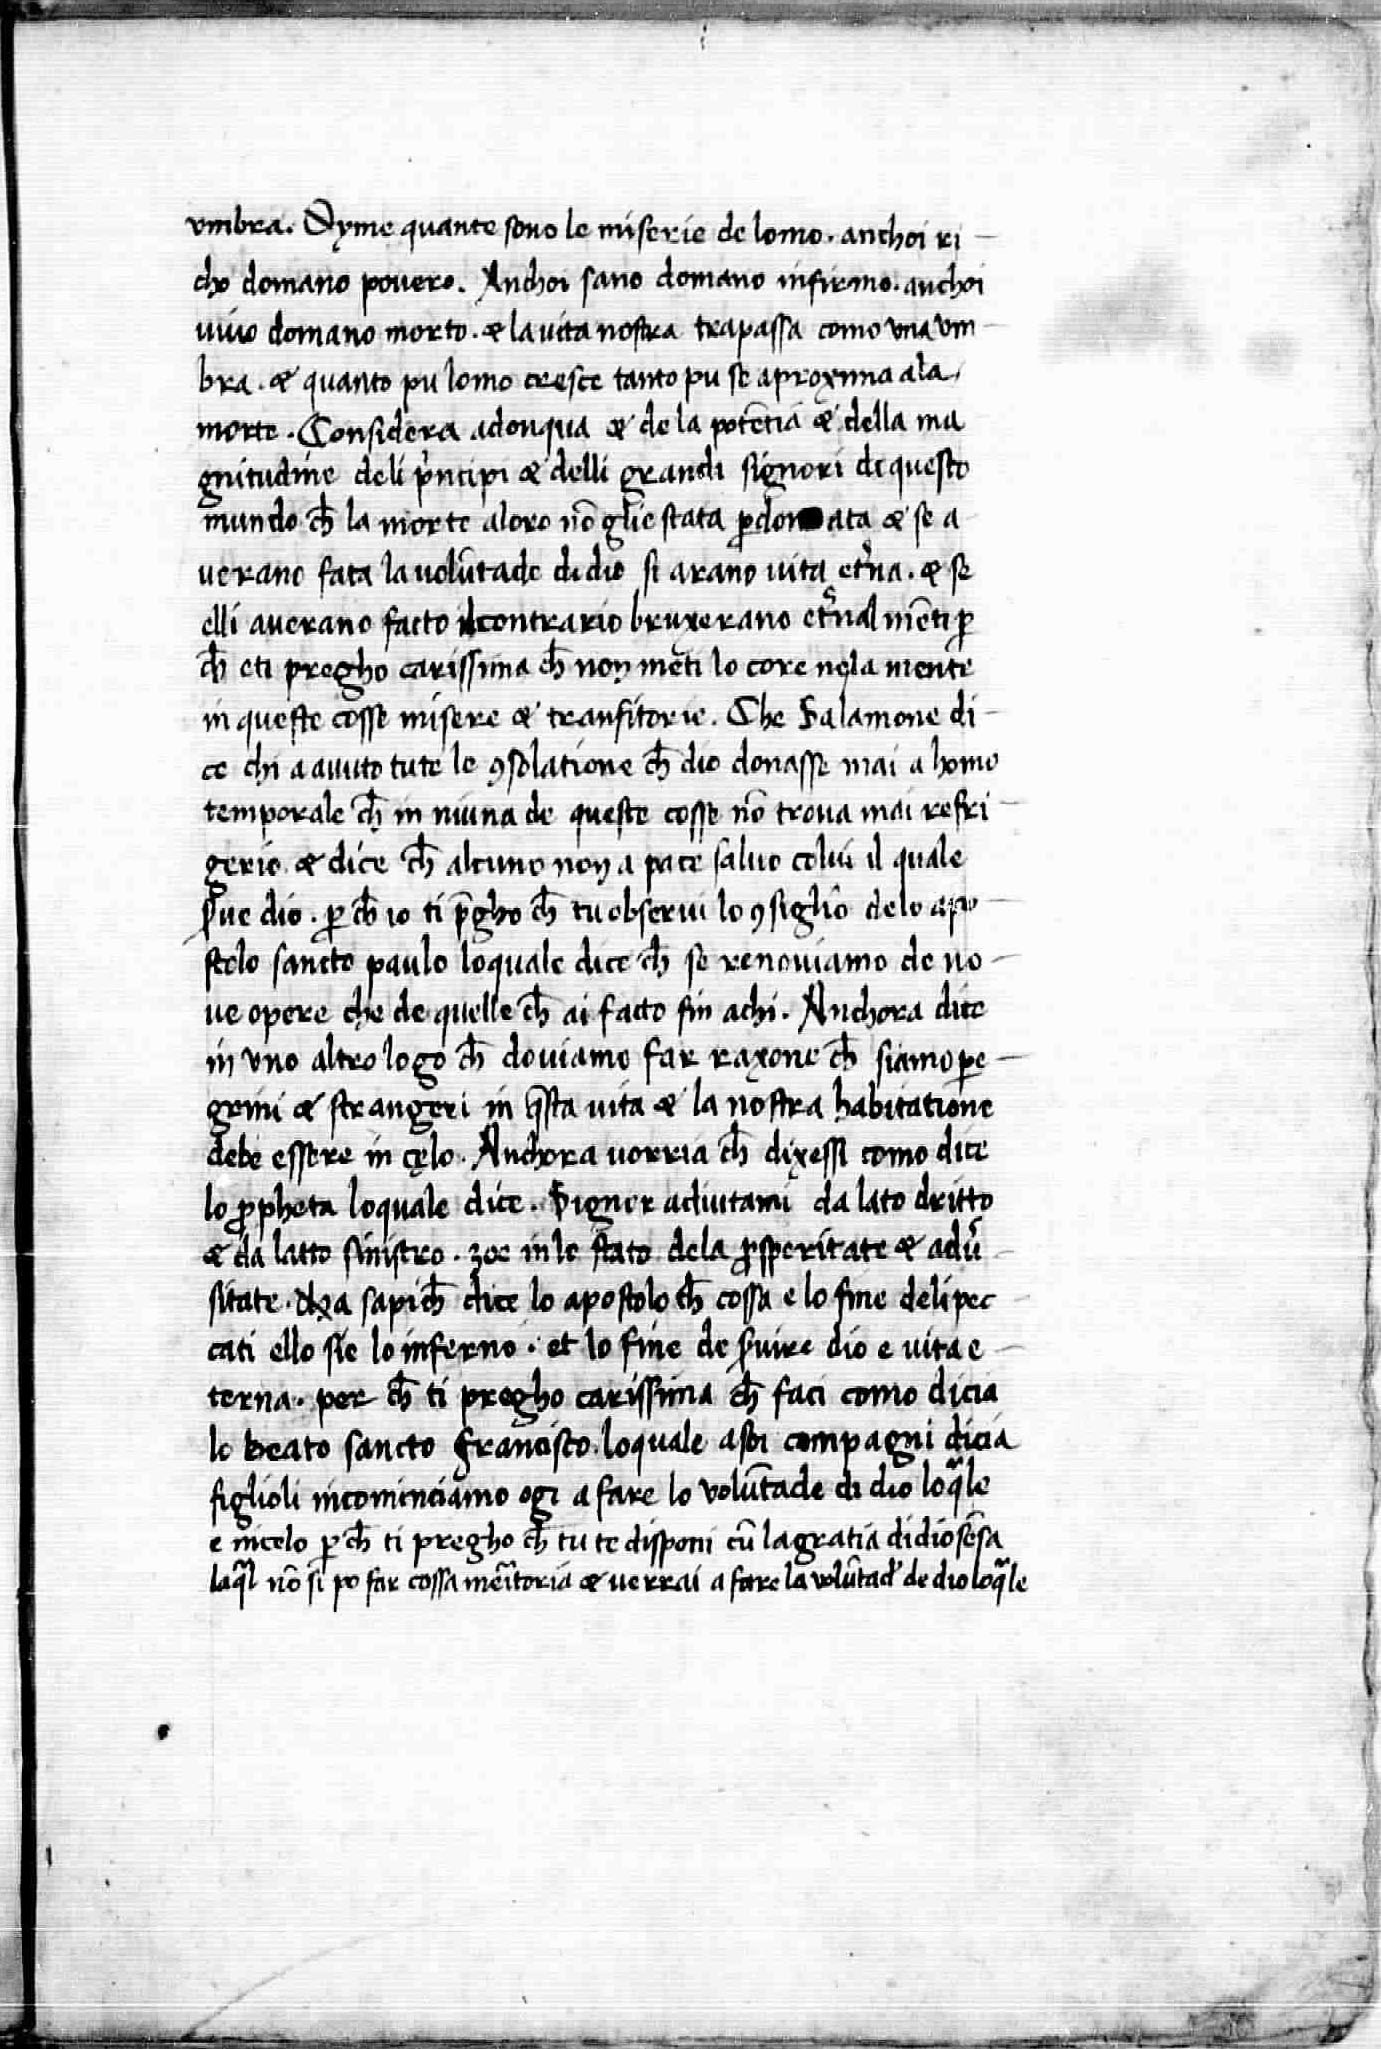 vmbra. Oyme quante sono le miserie de lomo. anchoi ri
cho domano pouero. Anchoi sano domano infirmo. anchoi
uiuo domano morto. & la uita nostra trapassa como vna vm
bra. & quanto pu lomo cresce tanto pu se aproxima ala
morte. Considera adonqua & de la potētia & della ma
gnitudine deli p̃ncipi & delli grandi signori de questo
mundo cħ la morte aloro nō glie stata ꝑdonata & se a
uerano fata la volūtade di dio si arano uita et̃na. & se
elli auerano facto il contrario bruxerano et̃nal mēti ꝑ
cħ eti pregho carissima cħ non meti lo core nela mente
in queste cosse misere & transitorie. Che Salamone di
ce chi a auuto tute le ꝯsolatione cħ dio donasse mai a homo
temporale cħ in niuna de queste cosse nō troua mai refri
gerio. & dice cħ alcuno non a pace saluo colui il quale
ẜue dio. ꝑ cħ io ti p̃gho cħ tu obserui lo ꝯsiglio delo apo
stolo sancto paulo loquale dice cħ se renouiamo de no
ue opere che de quelle cħ ai facto fin achi. Anchora dice
in vno altro logo cħ douiamo far raxone cħ siamo pe
grini & strangeri in q̃sta uita & la nostra habitatione
debe essere in cęlo. Anchora uorria cħ dixessi como dice
lo ꝓpheta loquale dice. Signor adiutami da lato dritto
& da latto sinistro. zoe in lo stato dela ꝓsperitate & adũ
sitate. sapi cħ dice lo apostolo cħ cossa e lo fine deli pec
cati ello sie lo inferno. et lo fine de ẜuire dio e uita e
terna. per cħ ti pregho carissima cħ faci como dicia
lo beato sancto Francisco. loquale a soi compagni dicia
figlioli incominciamo ogi a fare lo volūtade di dio loq̃le
e incelo ꝑ cħ ti pregho cħ tu te disponi cū la gratia di dio sēsa
laq̃l nō si po far cossa meritoria & uerrai a fare la volūtad' de dio loq̃le